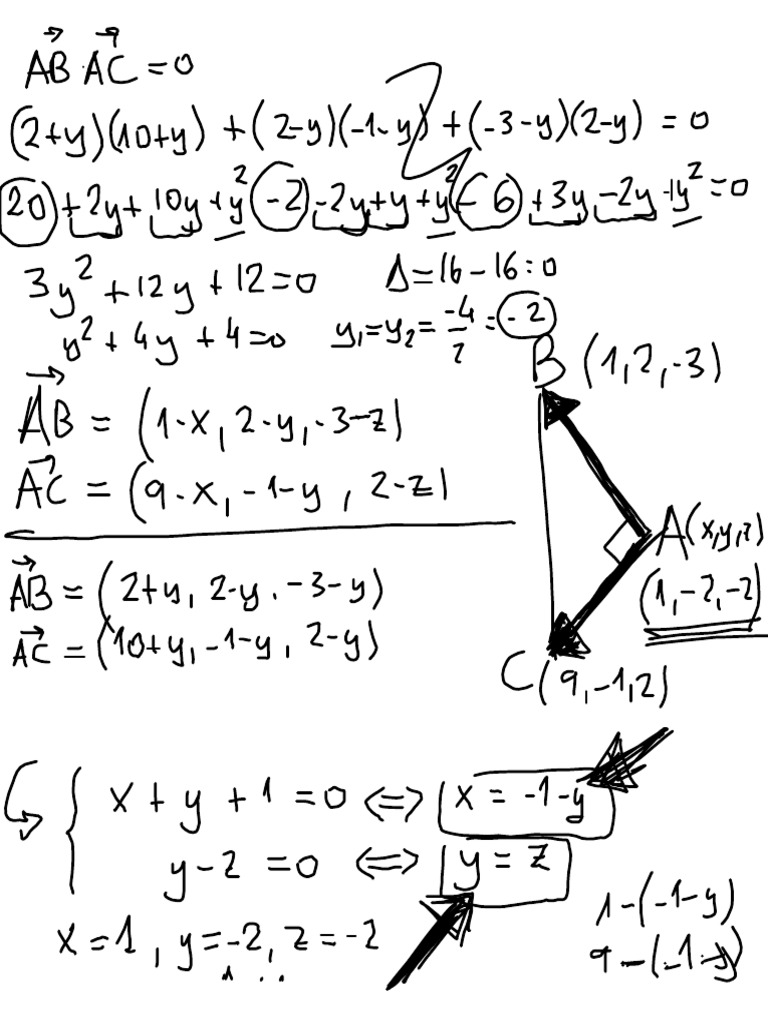 → →
AB·AC = 0
(2+y)(10+y) + (2-y)(-1-y) + (-3-y)(2-y) = 0
20 + 2y + 10y + y² - 2 - 2y + y + y² - 6 + 3y - 2y + y² = 0
3y² + 12y + 12 = 0 Δ = 16 - 16 = 0
y² + 4y + 4 = 0 y₁ = y₂ = -4/2 = -2
B (1, 2, -3)
AB = (1-x, 2-y, -3-z)
AC = (9-x, -1-y, 2-z)
A(x,y,z)
(1, -2, -2)
AB = (2+y, 2-y, -3-y)
AC = (10+y, -1-y, 2-y)
C (9, -1, 2)
x + y + 1 = 0 ⇔ x = -1-y
y - z = 0 ⇔ y = z
x = 1, y = -2, z = -2
1-(-1-y)
9-(-1-y)